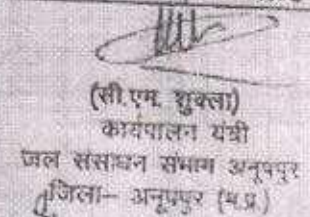 (सी.एम. शुक्ला)
कार्यपालन यंत्री
जल संसाधन संभाग अनूपपुर
जिला- अनूपपुर (म.प्र.)